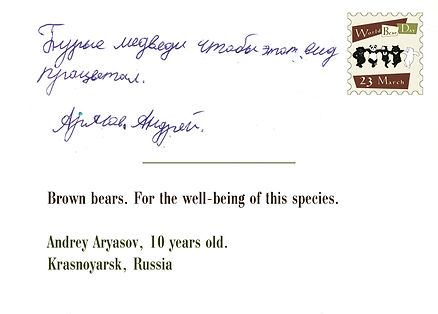 Бурые медведи чтобы этот вид
процветал.
World Bear Day
23 March
Арясов Андрей.
Brown bears. For the well-being of this species.
Andrey Aryasov, 10 years old.
Krasnoyarsk, Russia